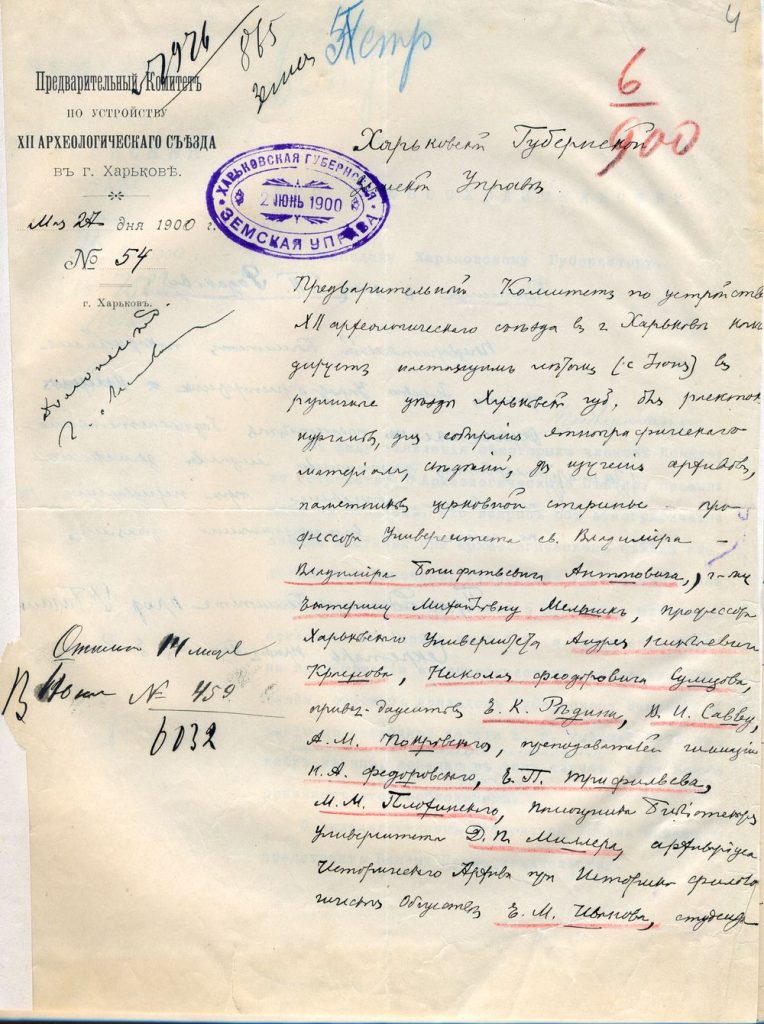 4
865
земск
6
900
Предварительный Комитетъ
по устройству
XII АРХЕОЛОГИЧЕСКАГО СЪѢЗДА
въ г. Харьковѣ.
Мая 27 дня 1900 г.
№ 54
г. Харьковъ.
ХАРЬКОВСКАЯ ГУБЕРНСКАЯ
2 ІЮНЬ 1900
ЗЕМСКАЯ УПРАВА
Харьковской Губернской
Земской Управѣ
Предварительный Комитетъ по устройству
XII археологическаго съѣзда въ г. Харьковѣ коман
дируетъ настоящимъ лѣтомъ (съ Іюня) въ
различные уѣзды Харьковской губ. для раскопокъ
кургановъ, для собиранія этнографическаго
матеріала, свѣдѣній, для изученія архивовъ,
памятниковъ церковной старины — про
фессора Университета св. Владиміра —
Владиміра Бонифатьевича Антоновича, г-жу
Екатерину Михайловну Мельникъ, профессора
Харьковскаго Университета Андрея Николаевича
Краснова, Николая Федоровича Сумцова,
приват-доцентовъ Е. К. Рѣдина, В. И. Савву,
А. М. Покровскаго, преподавателей гимназій
К. А. Федоровскаго, Е. П. Трифильева,
М. М. Плохинскаго, помощника Библіотекаря
Университета Д. П. Миллера, архиваріуса
Историческаго Архива при Историко филоло
гическомъ Обществѣ Е. М. Иванова, студента
14 Іюня
№ 459
6032